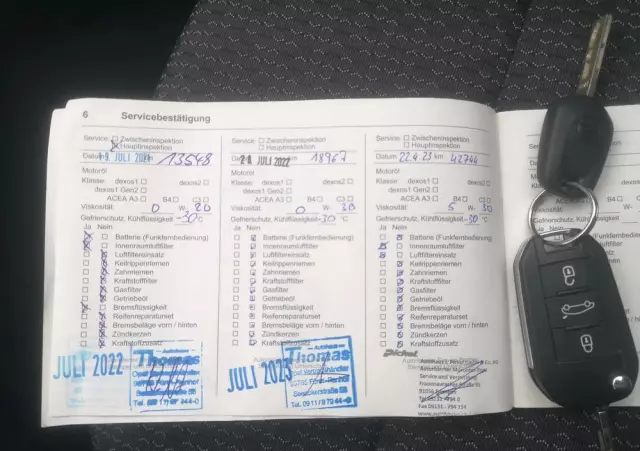 6 Servicebestätigung
Service: Zwischeninspektion
Hauptinspektion
Datum JULI km 13548
Motoröl
Klasse: dexos1 dexos2
dexos1 Gen2
ACEA A3 B4 C3
Viskosität 0 W- 20
Gefrierschutz, Kühlflüssigkeit -30 °C
Ja Nein
Batterie (Funkfernbedienung)
Innenraumluftfilter
Luftfiltereinsatz
Keilrippenriemen
Zahnriemen
Kraftstofffilter
Gasfilter
Getriebeöl
Bremsflüssigkeit
Reifenreparaturset
Bremsbeläge vorn / hinten
Zündkerzen
Kraftstoffzusatz
JULI 2022
Autohaus
Thomas
Service: Zwischeninspektion
Hauptinspektion
Datum JULI 2022 km 18967
Motoröl
Klasse: dexos1 dexos2
dexos1 Gen2
ACEA A3 B4 C3
Viskosität 0 W- 20
Gefrierschutz, Kühlflüssigkeit -30 °C
Ja Nein
Batterie (Funkfernbedienung)
Innenraumluftfilter
Luftfiltereinsatz
Keilrippenriemen
Zahnriemen
Kraftstofffilter
Gasfilter
Getriebeöl
Bremsflüssigkeit
Reifenreparaturset
Bremsbeläge vorn / hinten
Zündkerzen
Kraftstoffzusatz
JULI 2023
Autohaus
Thomas
Service: Zwischeninspektion
Hauptinspektion
Datum 22.4.23 km 42744
Motoröl
Klasse: dexos1 dexos2
dexos1 Gen2
ACEA A3 B4 C3
Viskosität 5 W- 30
Gefrierschutz, Kühlflüssigkeit -30 °C
Ja Nein
Batterie (Funkfernbedienung)
Innenraumluftfilter
Luftfiltereinsatz
Keilrippenriemen
Zahnriemen
Kraftstofffilter
Gasfilter
Getriebeöl
Bremsflüssigkeit
Reifenreparaturset
Bremsbeläge vorn / hinten
Zündkerzen
Kraftstoffzusatz
Service
Gefrierschutz,
Ja Nein